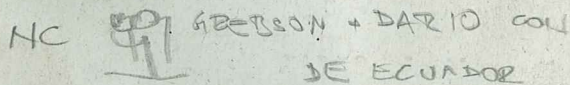 NC GEEBSON + DARIO CON
DE ECUADOR